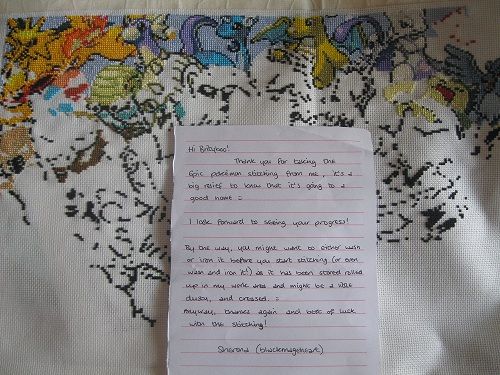 Hi Brityboo!
Thank you for taking the
Epic pokémon stitching from me, it's a
big relief to know that it's going to a
good home =
I look forward to seeing your progress!
By the way, you might want to either wash
or iron it before you start stitching (or even
wash and iron it!) as it has been stored rolled
up in my work area and might be a little
dusty, and creased. =
Anyway, thanks again and best of luck
with the stitching!
Sharona (blackmageheart)